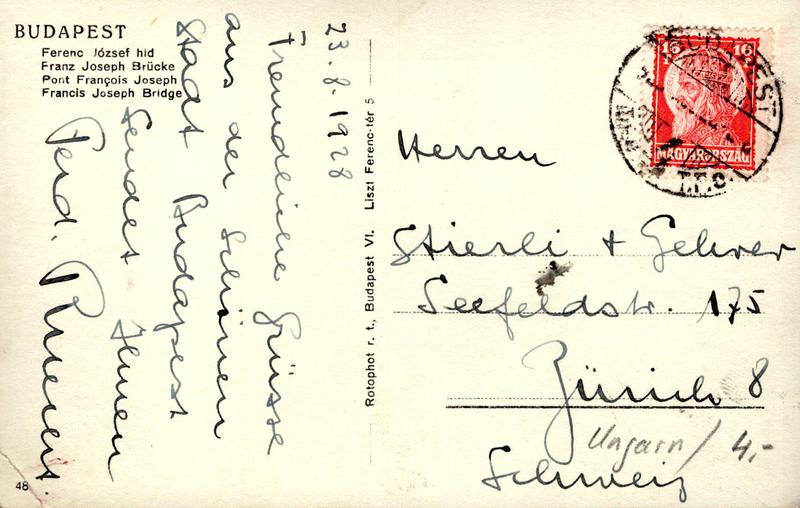 BUDAPEST
Ferenc József hid
Franz Joseph Brücke
Pont François Joseph
Francis Joseph Bridge
23.8.1928
Freundliche Grüsse
aus der schönen
Stadt Budapest
sendet Ihnen
Ferd.
48
Rotophot r. t., Budapest VI. Liszt Ferenc-tér 5
16 16
MAGYARORSZÁG
BUDAPEST
Herren
Stierli + Gehrer
Seefeldstr. 175
Zürich 8
Ungarn / 4,-
Schweiz